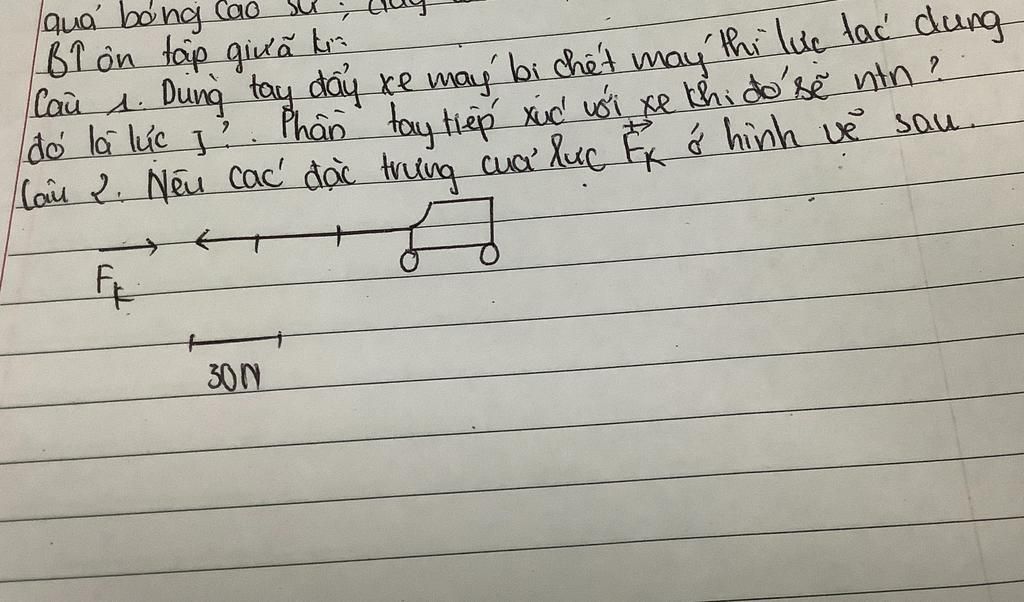 quả bóng cao su, dây
BT ôn tập giữa kì
Câu 1. Dùng tay đẩy xe máy bị chết máy thì lực tác dụng
đó là lực j?. Phần tay tiếp xúc với xe khi đó sẽ ntn?
Câu 2. Nêu các đặc trưng của lực F⃗k ở hình vẽ sau.
Fk
30N